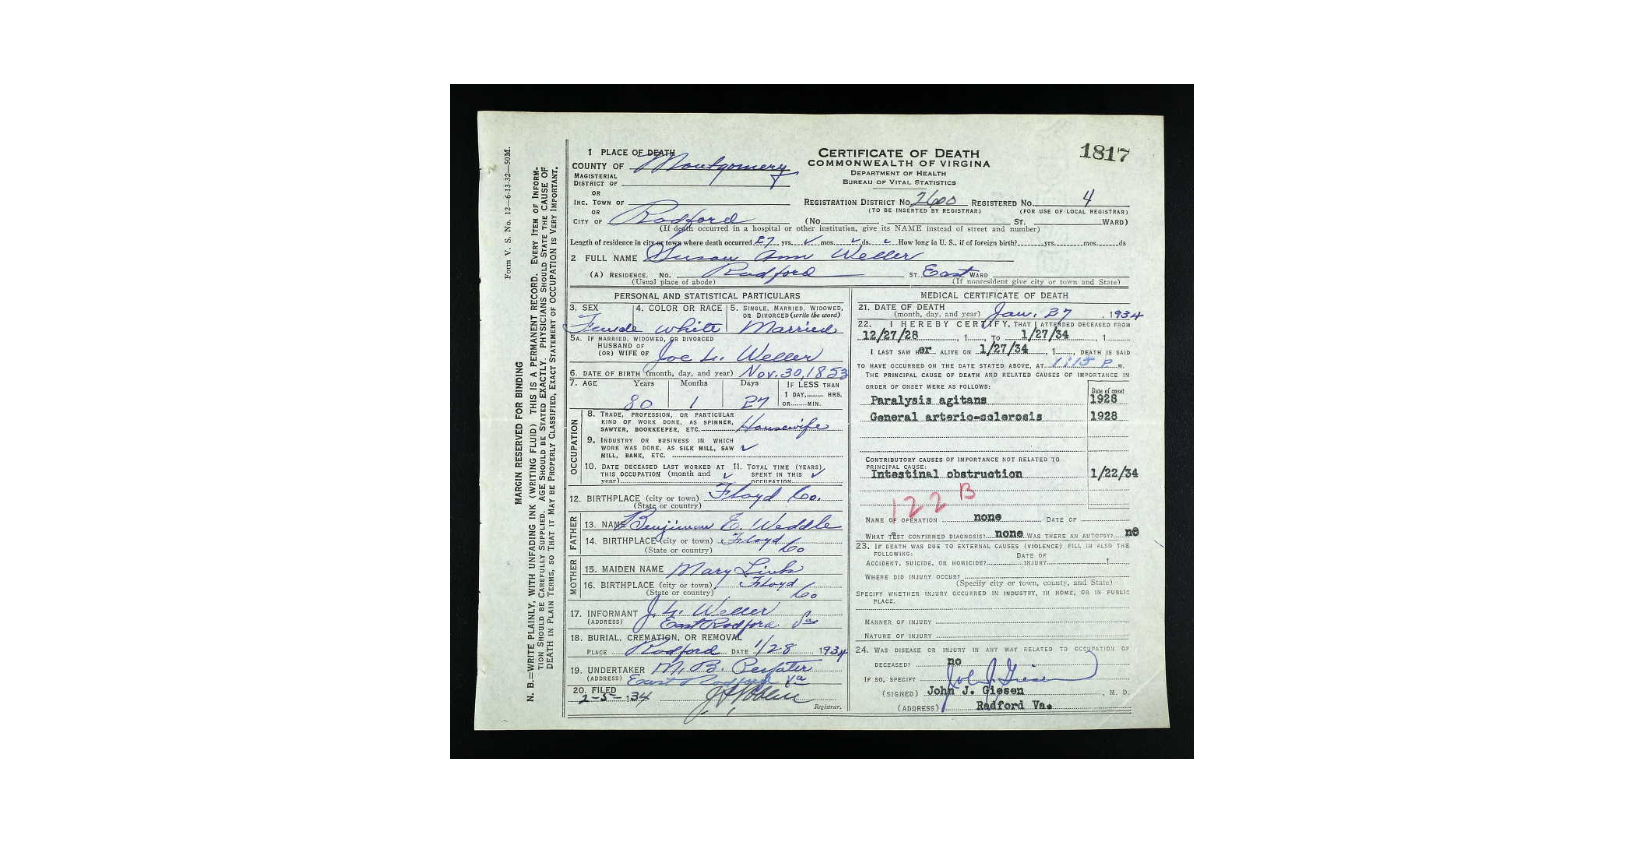 1817
Form V. S. No. 12—6-13-32—50M.
MARGIN RESERVED FOR BINDING
N. B.—WRITE PLAINLY, WITH UNFADING INK (WRITING FLUID) THIS IS A PERMANENT RECORD. EVERY ITEM OF INFORM-
TION SHOULD BE CAREFULLY SUPPLIED. AGE SHOULD BE STATED EXACTLY. PHYSICIANS SHOULD STATE THE CAUSE OF
DEATH IN PLAIN TERMS, SO THAT IT MAY BE PROPERLY CLASSIFIED. EXACT STATEMENT OF OCCUPATION IS VERY IMPORTANT.
CERTIFICATE OF DEATH
COMMONWEALTH OF VIRGINA
DEPARTMENT OF HEALTH
BUREAU OF VITAL STATISTICS
1 PLACE OF DEATH
COUNTY OF Montgomery
MAGISTERIAL
DISTRICT OF
OR
INC. TOWN OF
OR
CITY OF Radford
REGISTRATION DISTRICT No. 2600 REGISTERED No. 4
(TO BE INSERTED BY REGISTRAR) (FOR USE OF LOCAL REGISTRAR)
(No. ST. WARD)
(If death occurred in a hospital or other institution, give its NAME instead of street and number)
Length of residence in city or town where death occurred yrs. mos. ds. How long in U. S., if of foreign birth? yrs. mos. ds
2 FULL NAME Susan Ann Weller
(A) RESIDENCE. No. Radford ST. East WARD
(Usual place of abode) (If nonresident give city or town and State)
PERSONAL AND STATISTICAL PARTICULARS
3. SEX 4. COLOR OR RACE 5. SINGLE, MARRIED, WIDOWED,
OR DIVORCED (write the word)
Female White Married
5A. IF MARRIED, WIDOWED, OR DIVORCED
HUSBAND OF
(OR) WIFE OF Joe L. Weller
6. DATE OF BIRTH (month, day, and year) Nov. 30, 1853
7. AGE Years Months Days IF LESS THAN
1 DAY, HRS.
OR MIN.
80 1 27
OCCUPATION
8. TRADE, PROFESSION, OR PARTICULAR
KIND OF WORK DONE, AS SPINNER,
SAWYER, BOOKKEEPER, ETC. Housewife
9. INDUSTRY OR BUSINESS IN WHICH
WORK WAS DONE, AS SILK MILL, SAW
MILL, BANK, ETC.
10. DATE DECEASED LAST WORKED AT 11. TOTAL TIME (YEARS),
THIS OCCUPATION (month and SPENT IN THIS
year) OCCUPATION
12. BIRTHPLACE (city or town) Floyd Co.
(State or country)
FATHER
13. NAME E. Weddle
14. BIRTHPLACE (city or town) Floyd
(State or country) Co
MOTHER
15. MAIDEN NAME Mary
16. BIRTHPLACE (city or town) Floyd
(State or country) Co
17. INFORMANT J. L. Weller
(ADDRESS) East Radford Va
18. BURIAL, CREMATION, OR REMOVAL
PLACE Radford DATE 1/28 1934
19. UNDERTAKER M. B.
(ADDRESS) East Radford Va
20. FILED
2-5- 34
Registrar.
MEDICAL CERTIFICATE OF DEATH
21. DATE OF DEATH
(month, day, and year) Jan. 27, 1934
22. I HEREBY CERTIFY, THAT I ATTENDED DECEASED FROM
12/27/28, 1 TO 1/27/34, 1
I LAST SAW her ALIVE ON 1/27/34, 1 , DEATH IS SAID
TO HAVE OCCURRED ON THE DATE STATED ABOVE, AT P M.
THE PRINCIPAL CAUSE OF DEATH AND RELATED CAUSES OF IMPORTANCE IN
ORDER OF ONSET WERE AS FOLLOWS: Date of onset
Paralysis agitans 1928
General arterio-sclerosis 1928
CONTRIBUTORY CAUSES OF IMPORTANCE NOT RELATED TO
PRINCIPAL CAUSE:
Intestinal obstruction 1/22/34
122 B
NAME OF OPERATION none DATE OF
WHAT TEST CONFIRMED DIAGNOSIS? none WAS THERE AN AUTOPSY? no
23. IF DEATH WAS DUE TO EXTERNAL CAUSES (VIOLENCE) FILL IN ALSO THE
FOLLOWING: DATE OF
ACCIDENT, SUICIDE, OR HOMICIDE? INJURY 1
WHERE DID INJURY OCCUR?
(Specify city or town, county, and State)
SPECIFY WHETHER INJURY OCCURRED IN INDUSTRY, IN HOME, OR IN PUBLIC
PLACE.
MANNER OF INJURY
NATURE OF INJURY
24. WAS DISEASE OR INJURY IN ANY WAY RELATED TO OCCUPATION OF
DECEASED? no
IF SO, SPECIFY
(SIGNED) John J. Giesen, M. D.
(ADDRESS) Radford Va.